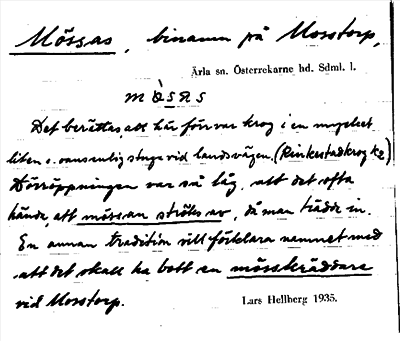 Mössas, binamn på Mosstorp,
Ärla sn. Österrekarne hd. Sdml. l.
mösas
Det berättas, att här förr var krog i en mycket
liten o. oansenlig stuga vid landsvägen. (Rinkestadkrog k2)
Dörröppningen var så låg, att det ofta
hände, att mössan ströks av, då man trädde in.
En annan tradition vill förklara namnet med
att det skall ha bott en mösskräddare
vid Mosstorp.
Lars Hellberg 1935.